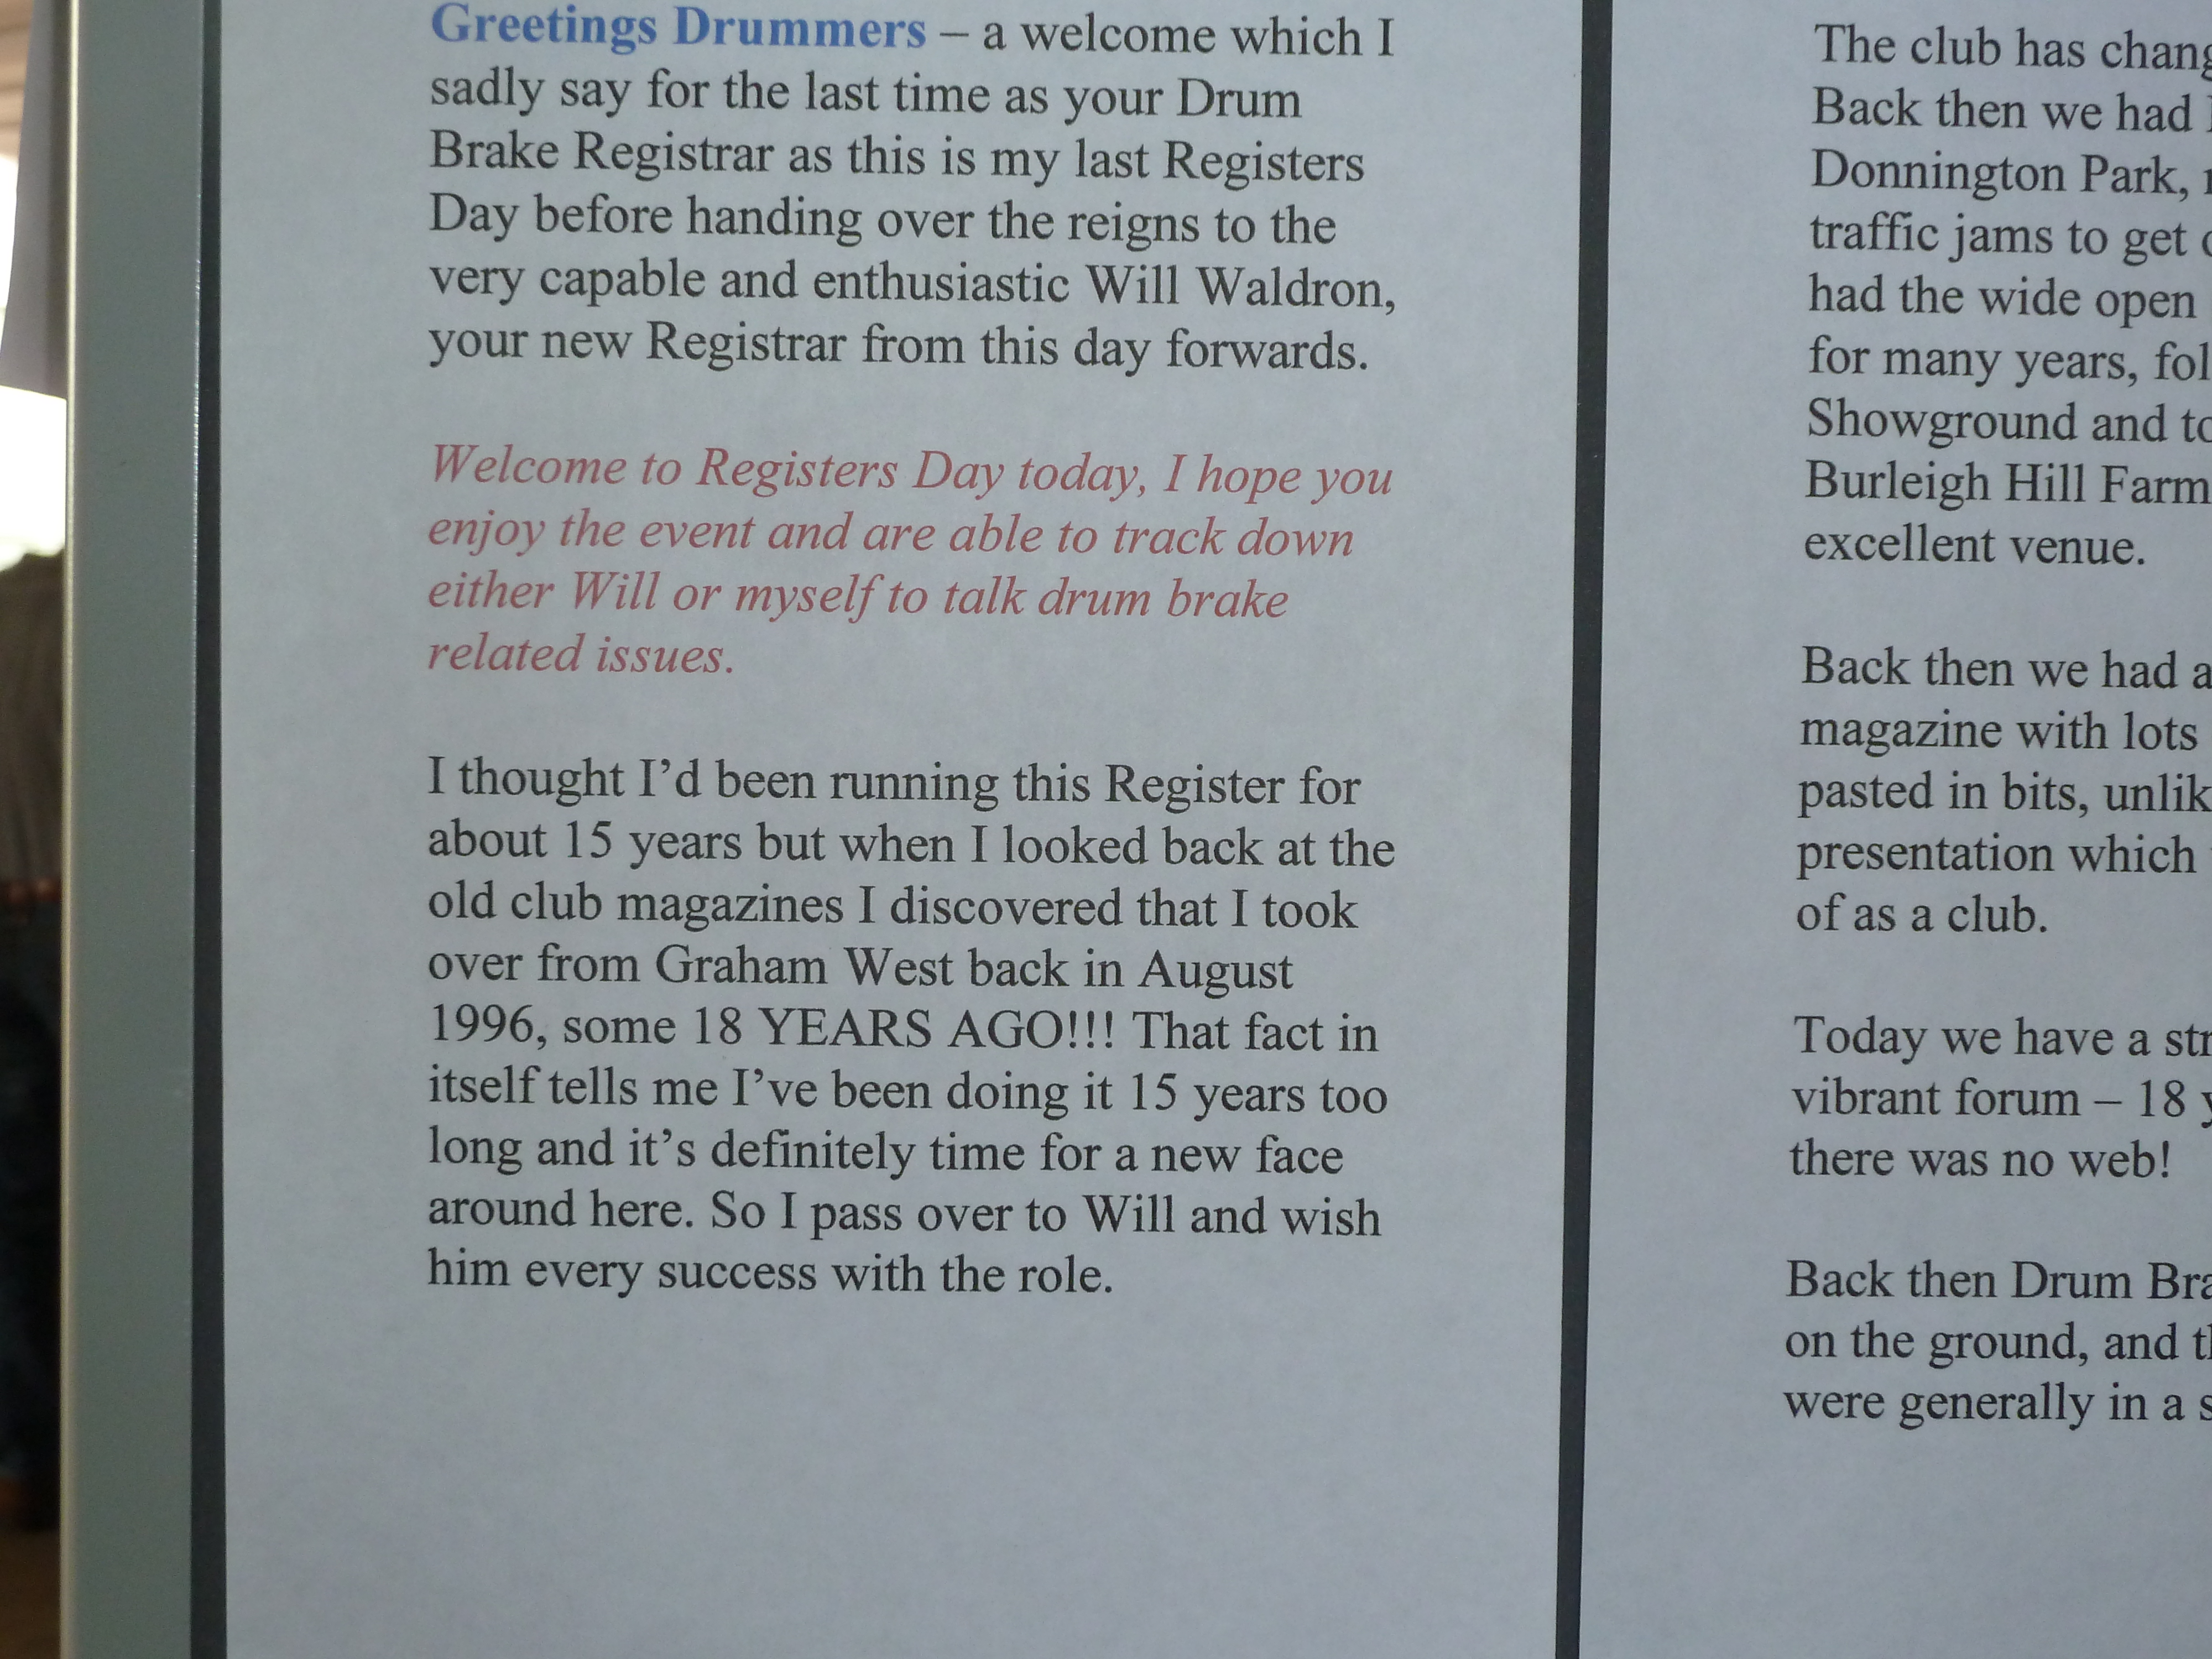 Greetings Drummers – a welcome which I
sadly say for the last time as your Drum
Brake Registrar as this is my last Registers
Day before handing over the reigns to the
very capable and enthusiastic Will Waldron,
your new Registrar from this day forwards.
Welcome to Registers Day today, I hope you
enjoy the event and are able to track down
either Will or myself to talk drum brake
related issues.
I thought I’d been running this Register for
about 15 years but when I looked back at the
old club magazines I discovered that I took
over from Graham West back in August
1996, some 18 YEARS AGO!!! That fact in
itself tells me I’ve been doing it 15 years too
long and it’s definitely time for a new face
around here. So I pass over to Will and wish
him every success with the role.
The club has
Back then we had
Donnington Park,
traffic jams to get
had the wide open
for many years,
Showground and
Burleigh Hill Farm
excellent venue.
Back then we had a
magazine with lots
pasted in bits,
presentation which
of as a club.
Today we have a
vibrant forum – 18
there was no web!
Back then Drum
on the ground, and
were generally in a